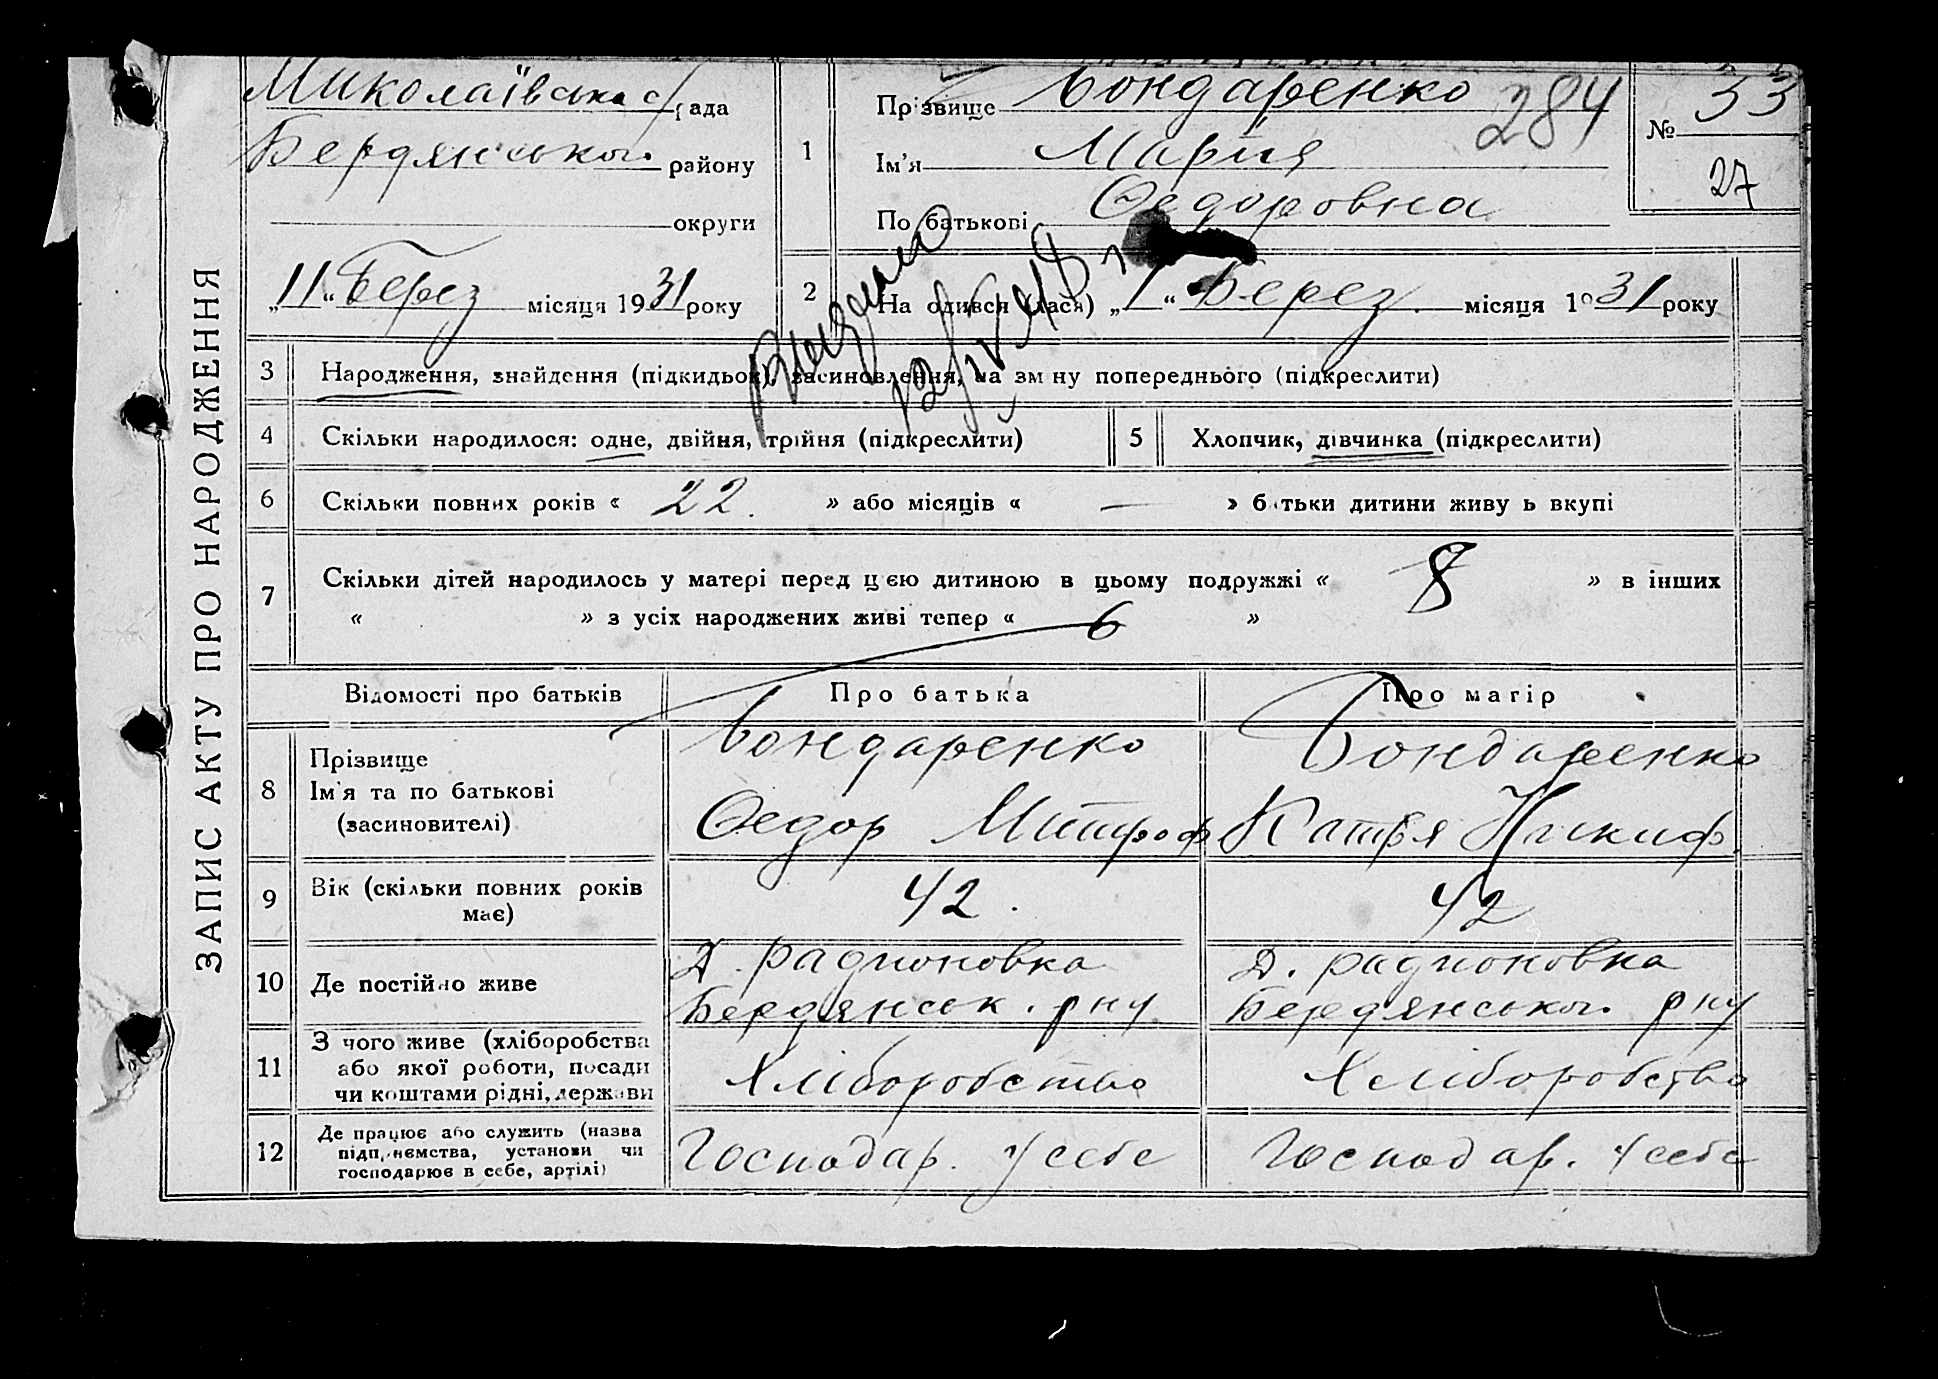 ЗАПИС АКТУ ПРО НАРОДЖЕННЯ
Миколаївська с/рада
Бердянськог. району
округи
„11“ Берез місяця 1931 року
1
Прізвище Бондаренко
Ім'я Мария
По батькові Федоровна
284
№ 33
27
2
На одився (лася) „1“ Берез. місяця 1931 року
3 Народження, знайдення (підкидьок), засиновлення, на зм ну попереднього (підкреслити)
4 Скільки народилося: одне, двійня, трійня (підкреслити)
5 Хлопчик, дівчинка (підкреслити)
6 Скільки повних років « 22. » або місяців « — » б тьки дитини живу ь вкупі
7 Скільки дітей народилось у матері перед цією дитиною в цьому подружжі « 8 » в інших
« » з усіх народжених живі тепер « 6 »
Відомості про батьків Про батька Про матір
8 Прізвище
Ім'я та по батькові
(засиновителі)
Бондаренко
Федор Митроф
Бондаренко
Катря Никиф.
9 Вік (скільки повних років
має)
42.
42
10 Де постійно живе
Д. Радионовка
Бердянськ. рну
Д. Радионовка
Бердянськог. рну
11 З чого живе (хліборобства
або якої роботи, посади
чи коштами рідні, держави
Хліборобство
Хліборобство
12 Де працює або служить (назва
підп иємства, установи чи
господарює в себе, артілі)
Господар. у себе
Господар. у себе